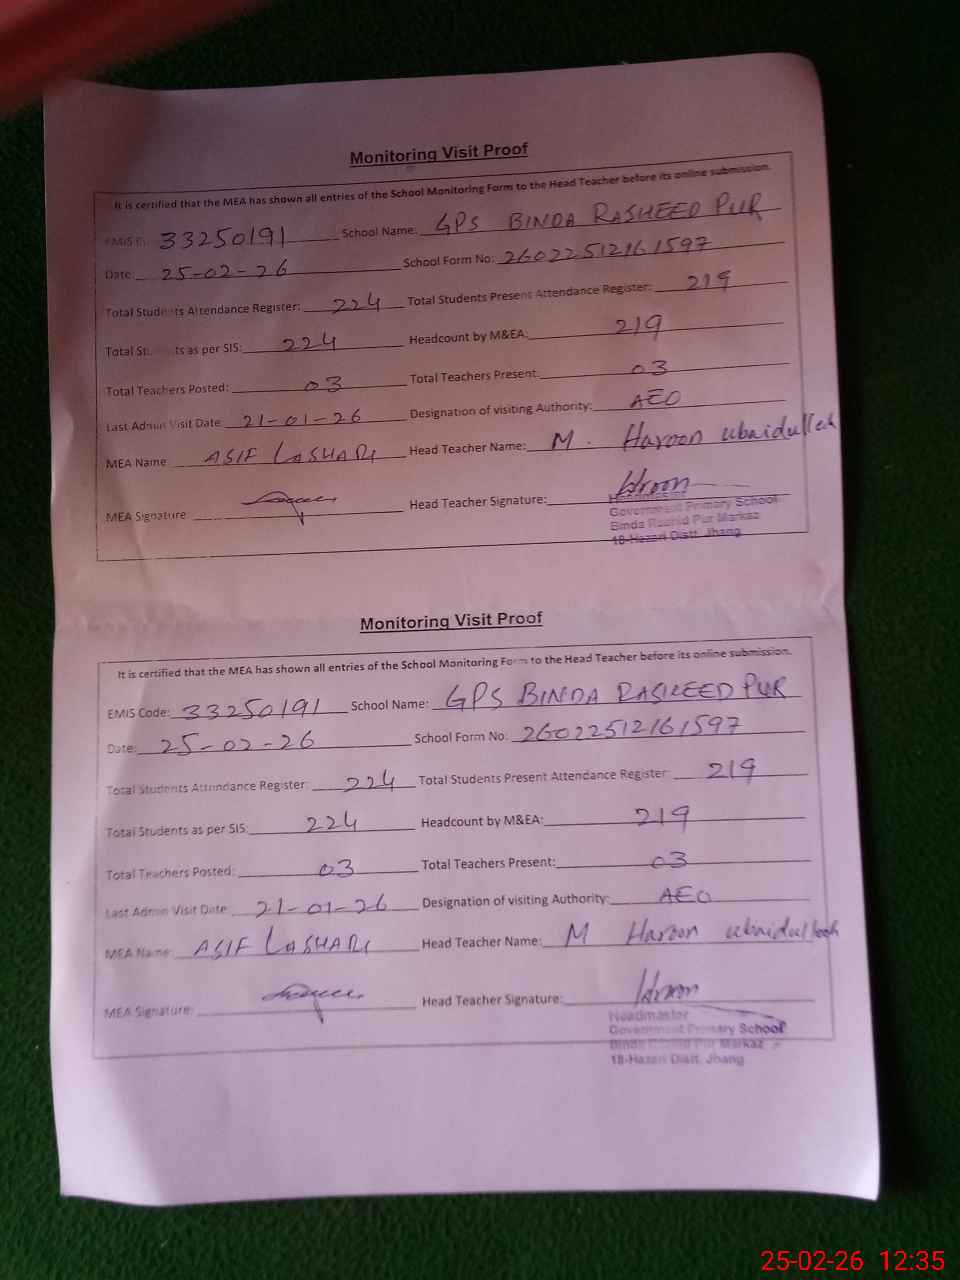 Monitoring Visit Proof
It is certified that the MEA has shown all entries of the School Monitoring Form to the Head Teacher before its online submission.
EMIS 33250191 School Name: GPS BINDA RASHEED PUR
Date: 25-02-26 School Form No: 26022512161597
Total Students Attendance Register: 224 Total Students Present Attendance Register: 219
Total Students as per SIS: 224 Headcount by M&EA: 219
Total Teachers Posted: 03 Total Teachers Present: 03
Last Admin Visit Date 21-01-26 Designation of visiting Authority: AEO
MEA Name ASIF LASHARI Head Teacher Name: M. Haroon ubaidullah
MEA Signature: Head Teacher Signature: Haroon
Headmaster
Government Primary School
Binda Rashid Pur Markaz
18-Hazari Distt. Jhang
Monitoring Visit Proof
It is certified that the MEA has shown all entries of the School Monitoring Form to the Head Teacher before its online submission.
EMIS Code: 33250191 School Name: GPS BINDA RASHEED PUR
Date: 25-02-26 School Form No: 26022512161597
Total Students Attendance Register: 224 Total Students Present Attendance Register: 219
Total Students as per SIS: 224 Headcount by M&EA: 219
Total Teachers Posted: 03 Total Teachers Present: 03
Last Admin Visit Date: 21-01-26 Designation of visiting Authority: AEO
MEA Name: ASIF LASHARI Head Teacher Name: M Haroon ubaidullah
MEA Signature: Head Teacher Signature: Haroon
Headmaster
Government Primary School
Binda Rashid Pur Markaz
18-Hazari Distt. Jhang
25-02-26 12:35